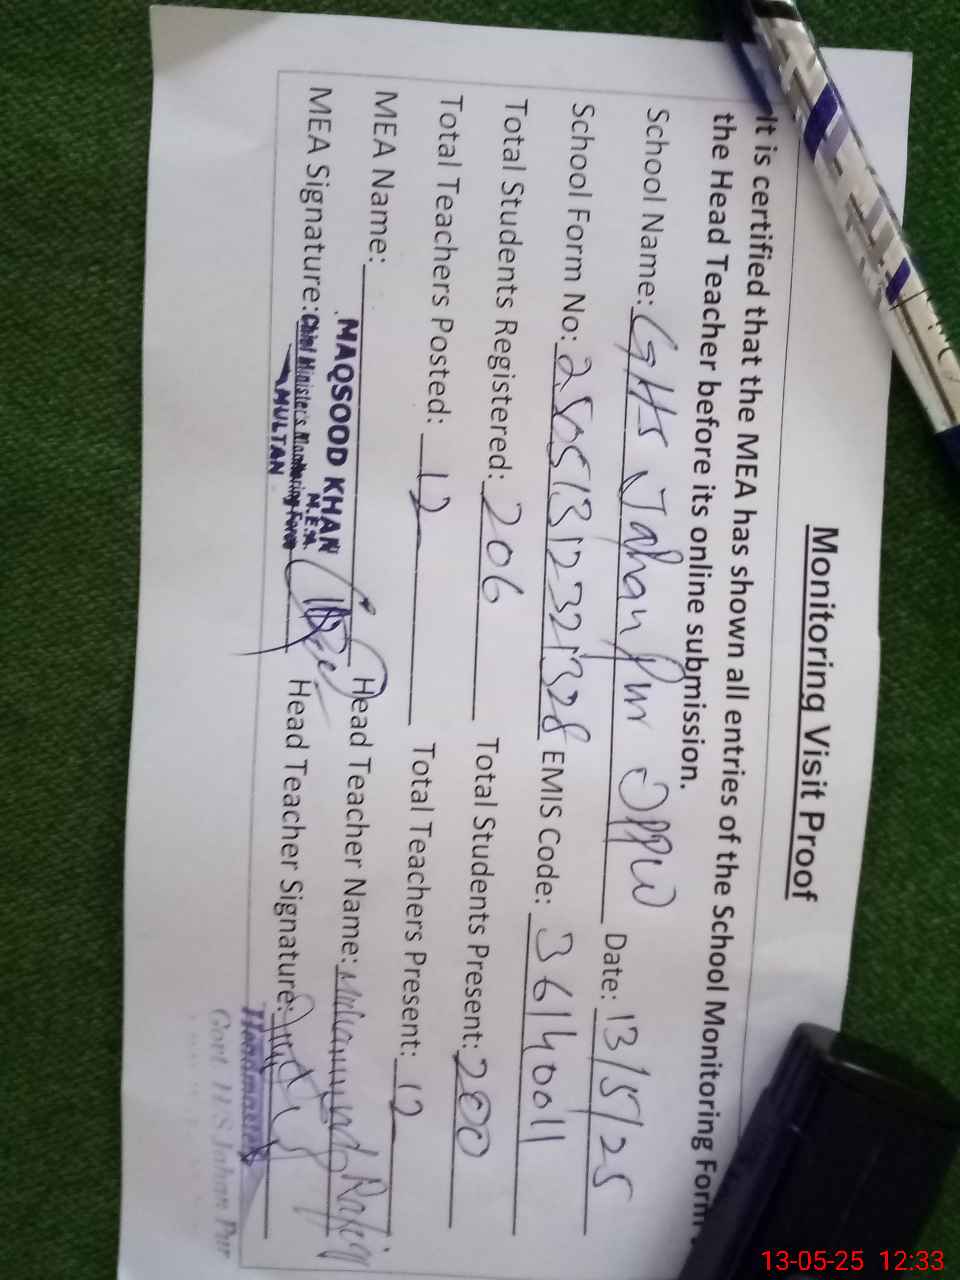 Monitoring Visit Proof
It is certified that the MEA has shown all entries of the School Monitoring Form
the Head Teacher before its online submission.
School Name: GHS Jahanpur Date: 13/5/25
School Form No: 250513123221328 EMIS Code: 36140011
Total Students Registered: 206 Total Students Present: 200
Total Teachers Posted: 12 Total Teachers Present: 12
MEA Name: MAQSOOD KHAN Head Teacher Name: Muhammad
M.E.A.
MEA Signature: Chief Minister's Monitoring Force Head Teacher Signature:
MULTAN
Headmaster
Govt. H/S Jahan Pur
13-05-25 12:33